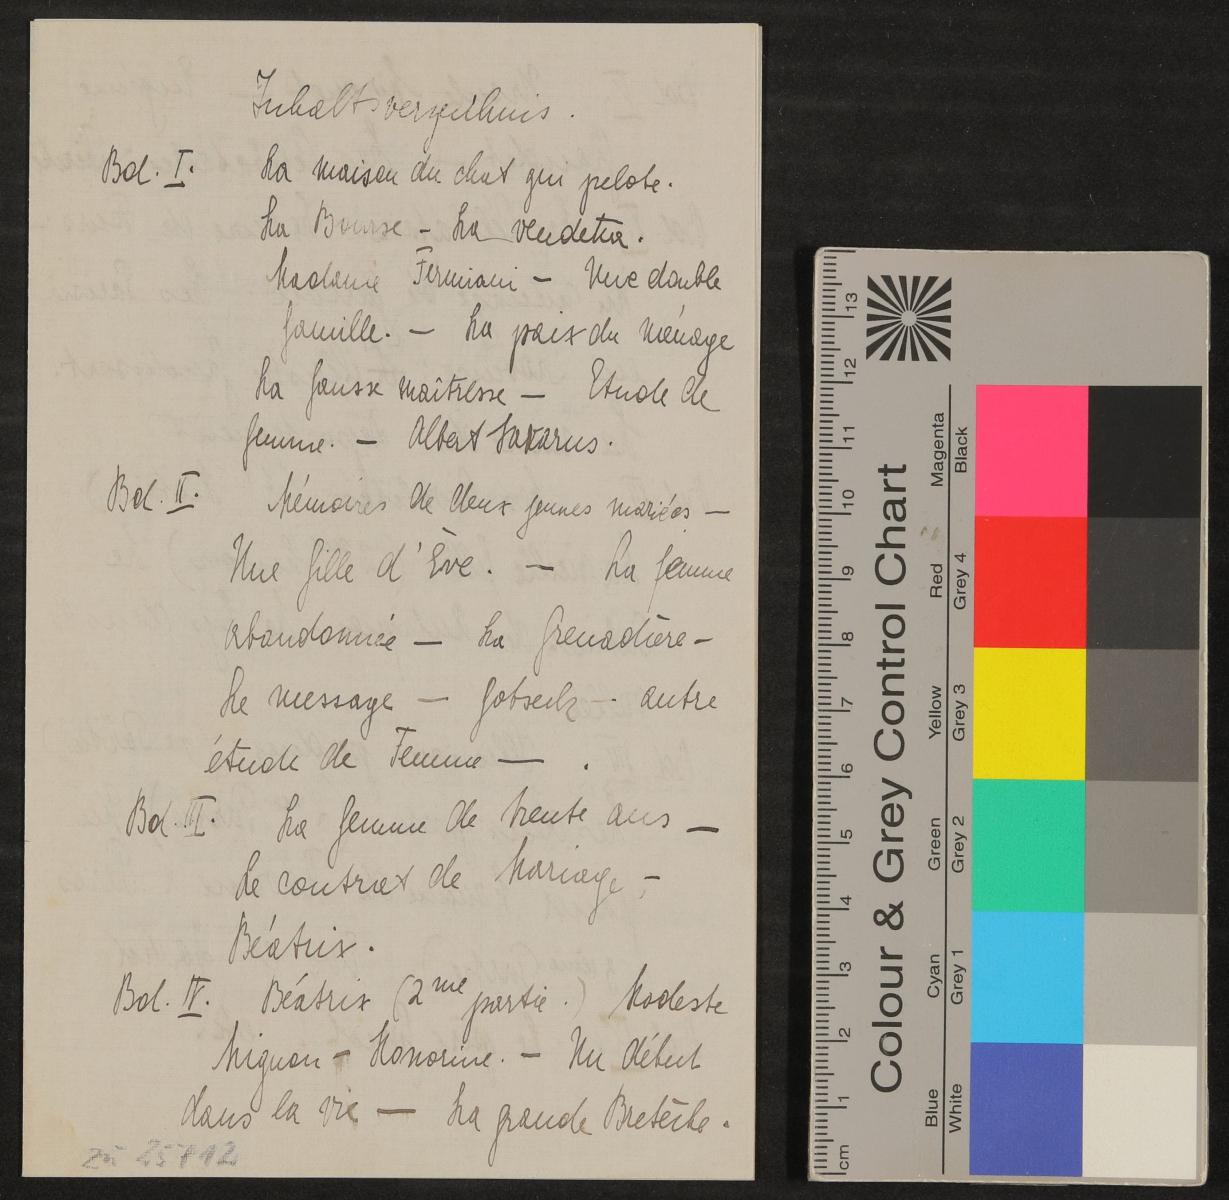 Inhaltsverzeichnis.
Bd. I. La maison du chat qui pelote.
La Bourse – La vendetta.
Madame Firmiani – Une double
famille. – La paix du ménage
La fausse maîtresse – Etude de
femme. – Albert Savarus.
Bd. II. Mémoires de deux jeunes mariées –
Une fille d'Ève. – La femme
abandonnée – La Grenadière –
Le message – Gobseck - autre
étude de Femme – .
Bd. III. La femme de trente ans –
Le contrat de Mariage –
Béatrix.
Bd. IV. Béatrix (2me partie.) Modeste
Mignon – Honorine. – Un début
dans la vie – La grande Bretèche.
zu 25712
Colour & Grey Control Chart
Blue Cyan Green Yellow Red Magenta
White Grey 1 Grey 2 Grey 3 Grey 4 Black
cm 1 2 3 4 5 6 7 8 9 10 11 12 13